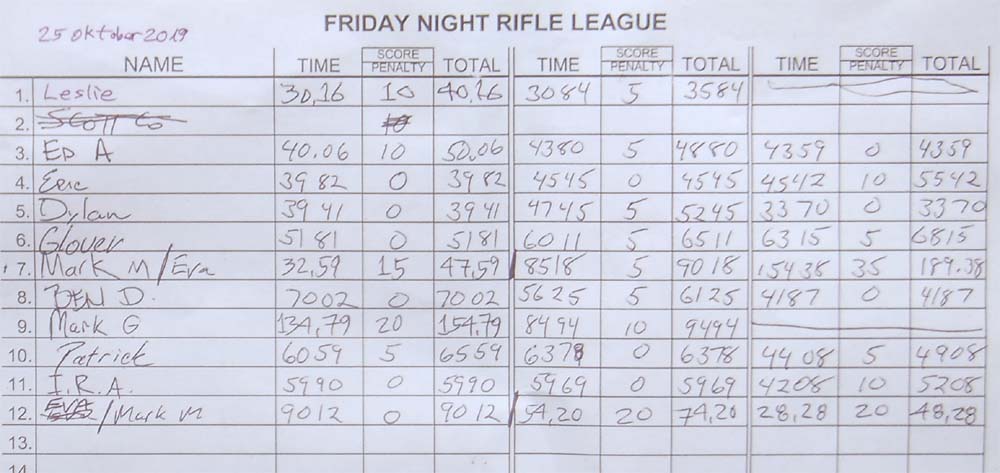 25 Oktober 2019
FRIDAY NIGHT RIFLE LEAGUE
NAME TIME SCORE PENALTY TOTAL TIME SCORE PENALTY TOTAL TIME SCORE PENALTY TOTAL
1. Leslie 30,16 10 40,16 3084 5 3584
2. Scott Co 10
3. ED A 40.06 10 50.06 4380 5 4880 4359 0 4359
4. Eric 39 82 0 39 82 4545 0 4545 4542 10 5542
5. Dylan 39 41 0 39 41 4745 5 5245 3370 0 3370
6. Glover 5181 0 5181 6011 5 6511 6315 5 6815
7. Mark M / Eva 32,59 15 47,59 8518 5 9018 154 38 35 189.38
8. BEN D. 7002 0 7002 5625 5 6125 4187 0 4187
9. Mark G 134,79 20 154,79 8494 10 9494
10. Patrick 6059 5 6559 6378 0 6378 4408 5 4908
11. I.R.A. 5990 0 5990 5969 0 5969 4208 10 5208
12. EVA / Mark M 9012 0 9012 54,20 20 74,20 28,28 20 48,28
13.
14